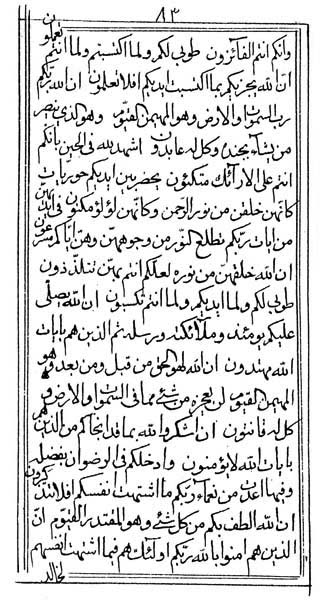 ٨٣
وانكم انتم الفآئزون طوبى لكم ولما اكتسبتم ولما انتم تعملون
ان الله يجزيكم بما اكتسبت ايديكم افلا تعلمون ان الله ربكم
رب السموات والارض وهو المهيمن القيوم وهو الذي ينصر
من يشآء بجنده وكل له عابدون اشهد لله في الحين بانكم
انتم على الارآئك متكئون يحضر بين ايديكم حوريات
كانهن خلقن من نور الرحمن وكانهن لؤلؤ مكنون في ايديهن
من ايات ربكم تطلع كنور من وجوههن وهن اياكم
ان الله خلقهن من نوره لعلكم انتم بهن تتلذذون
طوبى لكم ولما ايديكم ولما انتم تكسبون ان الله يصلي
عليكم يومئذ وملآئكته ورسله ثم الذين هم بايات
الله مهتدون ان الله لهو الحق من قبل ومن بعد وهو
المهيمن القيوم لن يعجزه من شئ مما في السموات والارض وهم
كل له قانتون ان اشكروا الله بما قد انجاكم من الذين هم
بايات الله لا يؤمنون وادخلكم في الرضوان بفضله
وفيها اعدت من نعمآء ربكم ما اشتهت انفسكم افلا تتذكرون
ان الله الطف بكم من كل شئ وهو المقتدر القيوم ان
الذين هم امنوا بالله ربكم اولئك هم فيما اشتهت انفسهم
لخالد